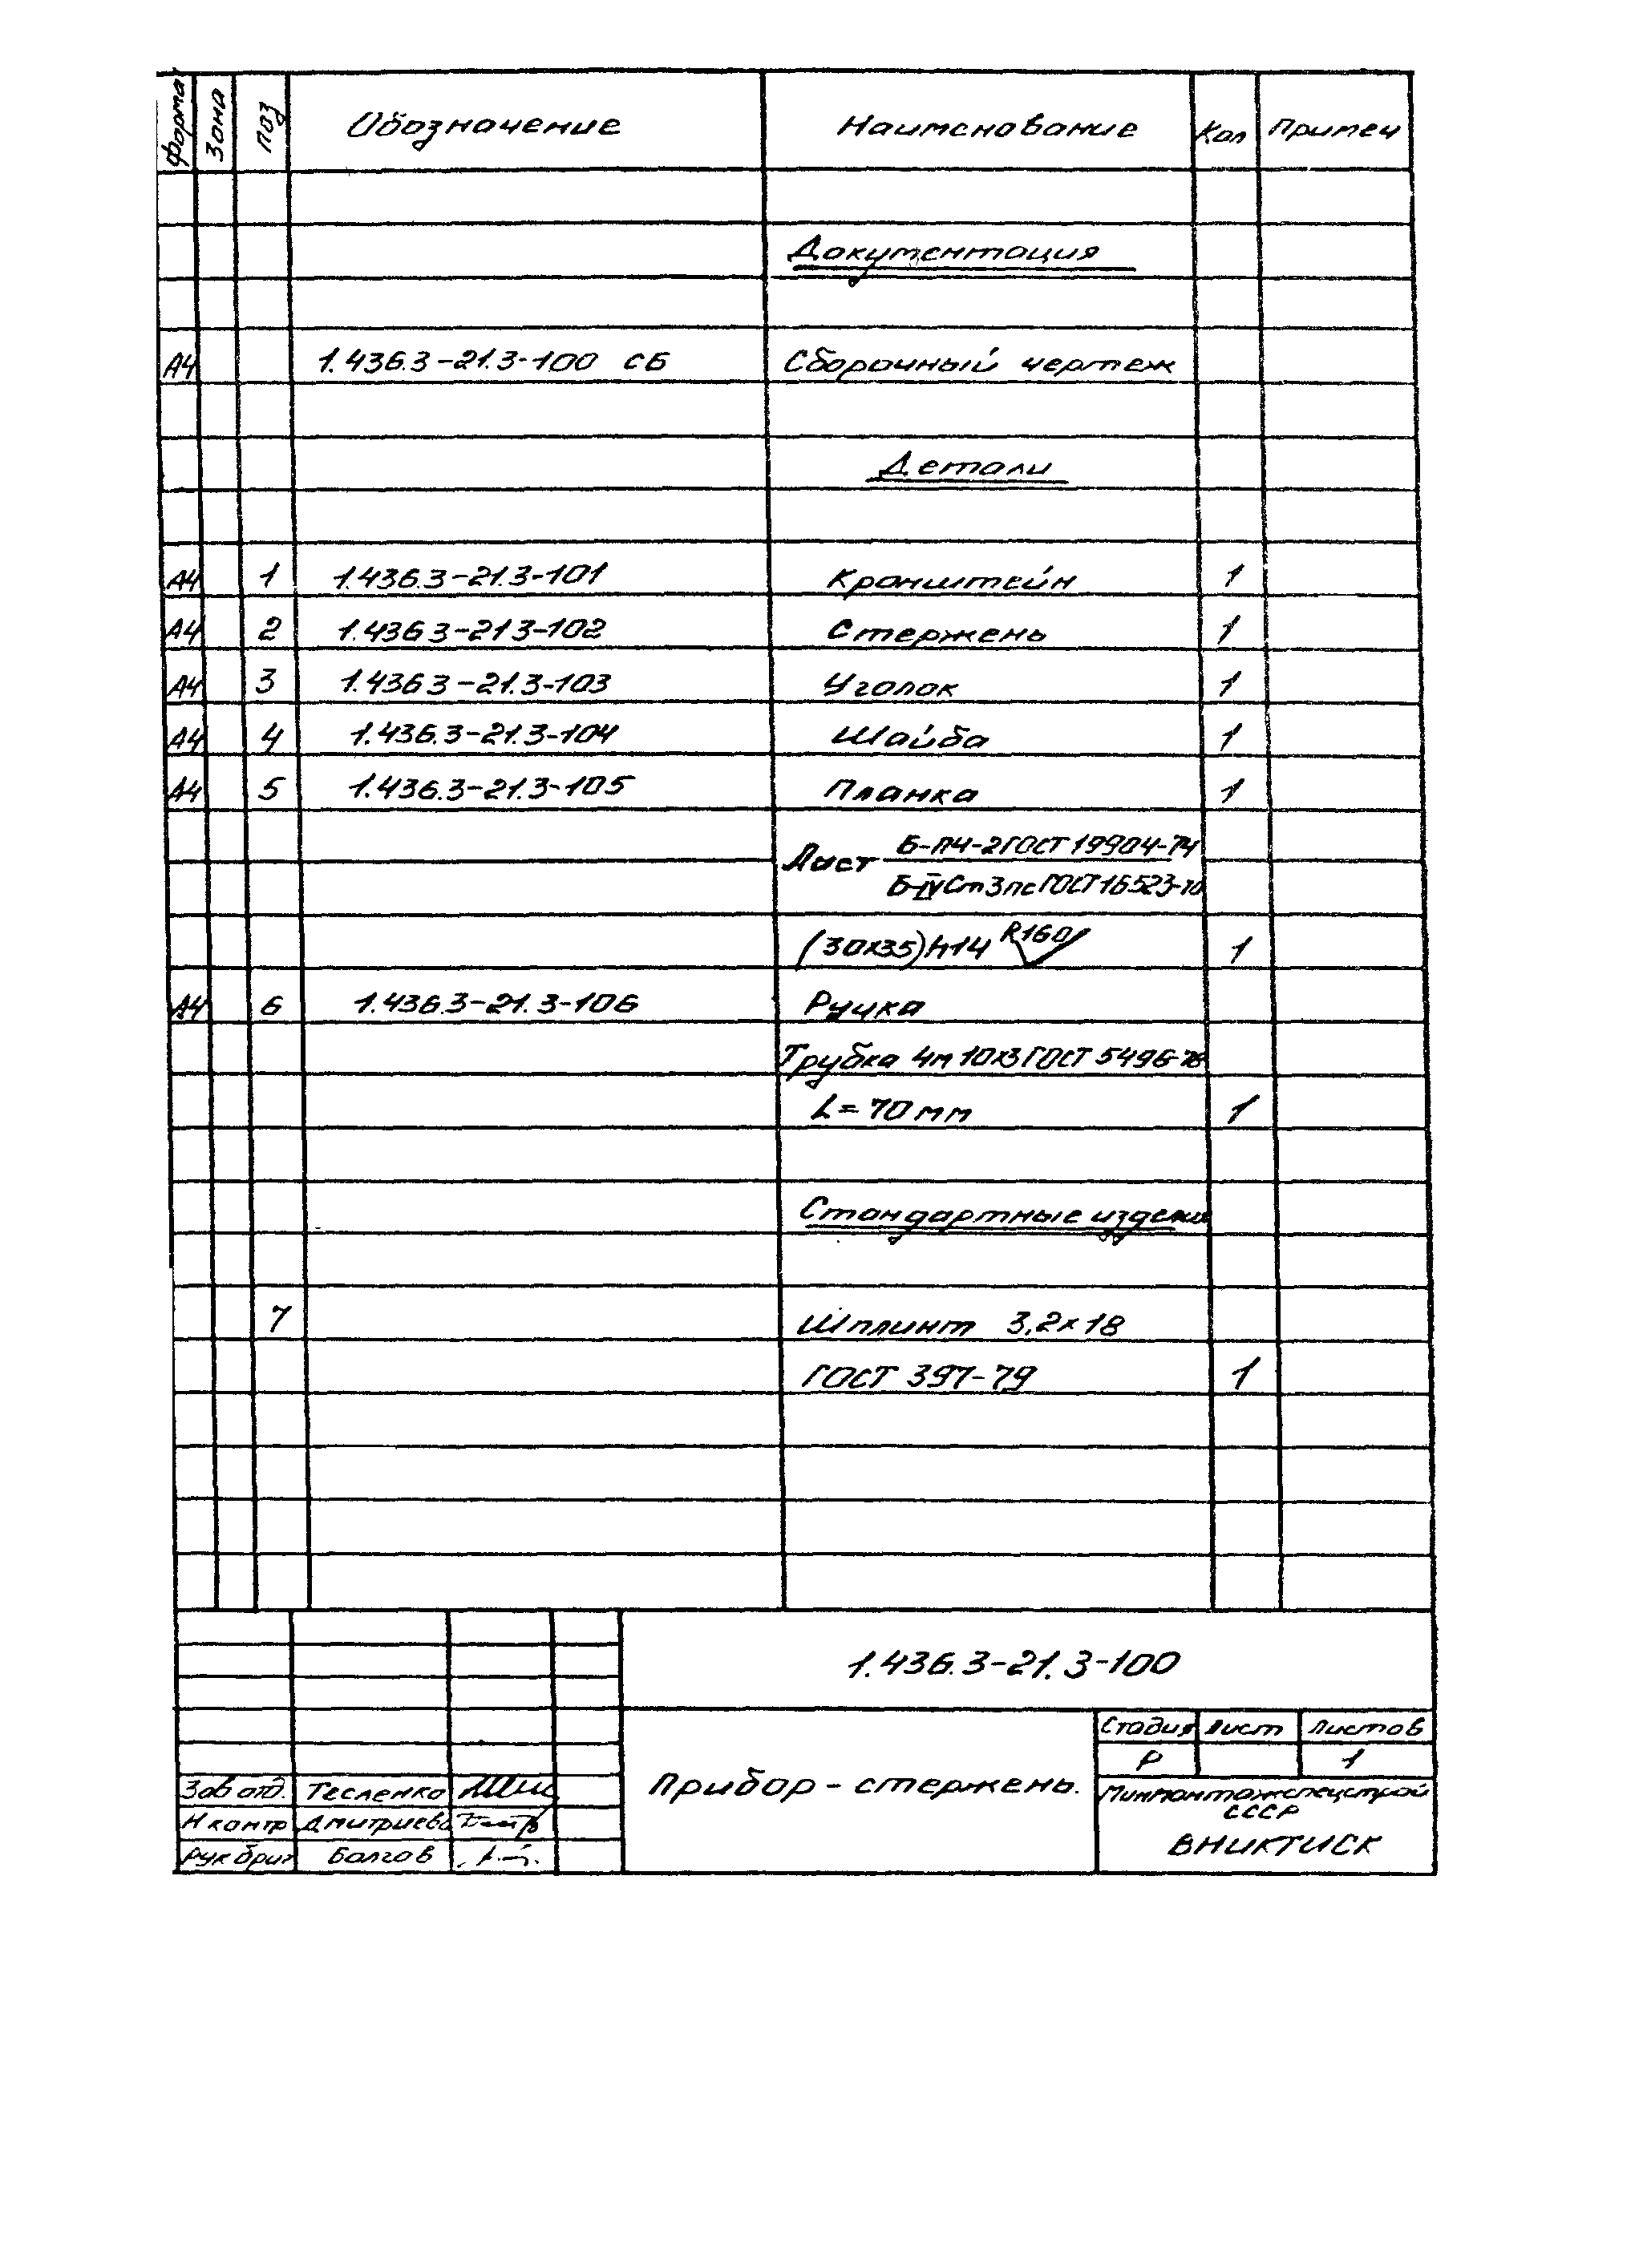 Формат Зона Поз Обозначение Наименование Кол Примеч
Документация
А4 1.436.3-21.3-100 СБ Сборочный чертеж
Детали
А4 1 1.436.3-21.3-101 Кронштейн 1
А4 2 1.436 3-21 3-102 Стержень 1
А4 3 1.436 3-21.3-103 Уголок 1
А4 4 1.436.3-21.3-104 Шайба 1
А4 5 1.436.3-21.3-105 Планка 1
Б-ПЧ-2 ГОСТ 19904-74
Лист
Б-IV Ст 3 пс ГОСТ 16523-70
(30х35) h14 R160 1
А4 6 1.436.3-21.3-106 Ручка
Трубка 4м 10х3 ГОСТ 5496-78
L = 70 мм 1
Стандартные изделия
7 Шплинт 3,2х18
ГОСТ 397-79 1
1.436.3-21.3-100
Стадия Лист Листов
Р 1
Зав отд. Тесленко
Прибор - стержень.
Минмонтажспецстрой
СССР
Н контр Дмитриева
ВНИКТИСК
Рук бриг Болгов